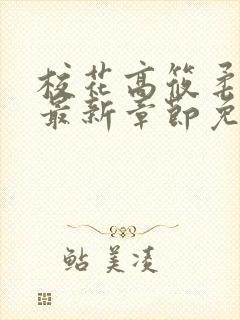 校花高筱柔
最新章节免
鲇美凌